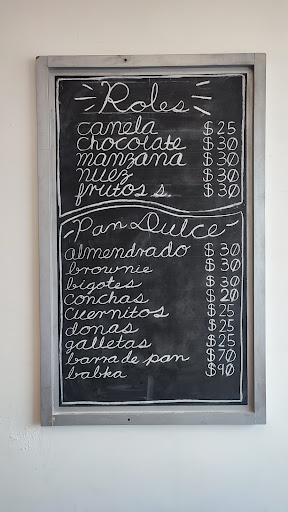 Roles
canela $25
chocolate $30
manzana $30
nuez $30
frutos s. $30
Pan Dulce
almendrado $30
brownie $30
bigotes $30
conchas $20
cuernitos $25
donas $25
galletas $25
barra de pan $70
babka $90